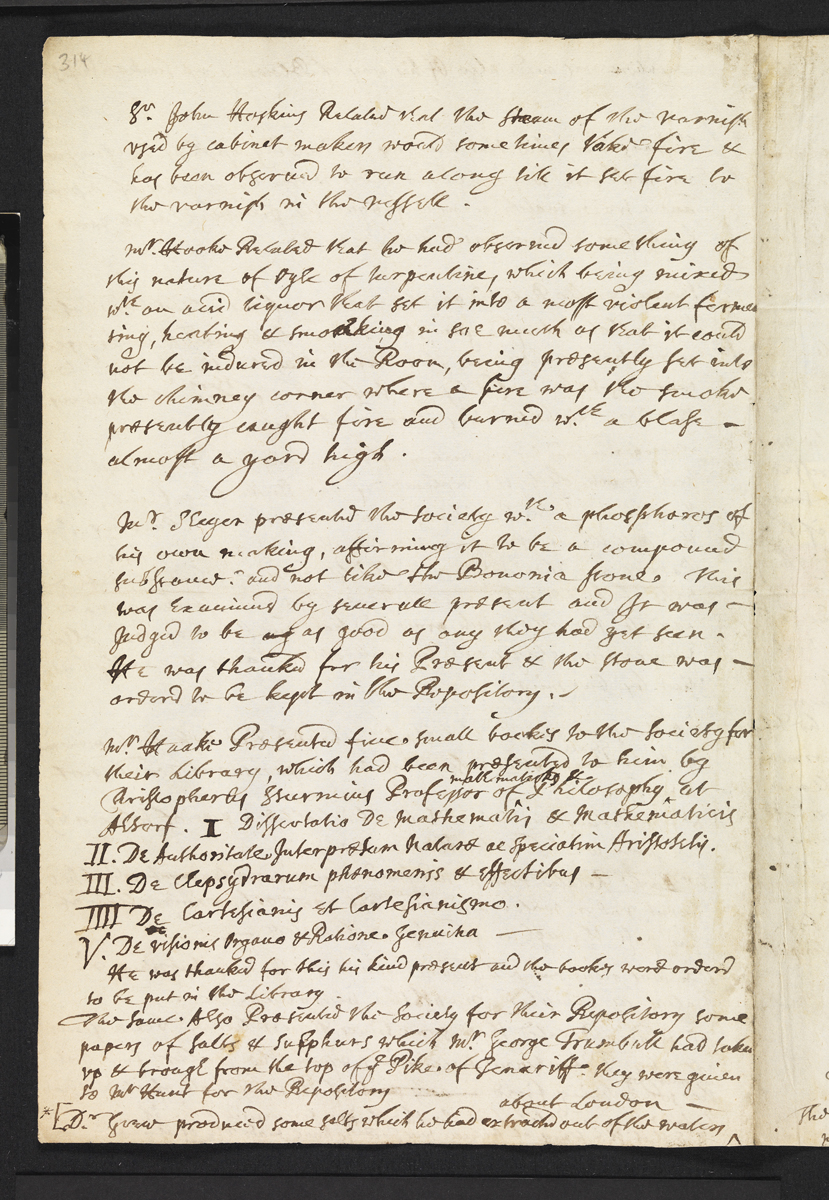 314
Sr. John Hoskins Related that the steam of the varnish
used by cabinet makers would sometimes take fire &
has been observed to run along till it set fire to
the varnish in the vessell.
mr. Hooke Related that he had observed something of
this nature of oyle of turpentine, which being mixed
wth. an acid liquor that set it into a most violent fermen
ting, heating & smoaking in soe much as that it could
not be indured in the Room, being præsently set into
the chimney corner where a fire was the smoke
præsently caught fire and burned wth. a blase –
almost a yard high.
mr. præsented the society wth. a phosphoros of
his own making, affirming it to be a compound
substance. and not like the Bononia stone. this
was Examined by severall præsent and It was –
Judged to be as good as any they had yet seen.
He was thanked for his Præsent & the stone was –
orderd to be kept in the Repository.
mr. Hooke Præsented five small bookes to the Society for
their Library, which had been præsented to him by
mathematicks &
Christopherus Sturmius Professor of Philosophy at
Altorf. I Dissertatio De Mathematis & Mathematicis
II. De Authoritate Interpretum Naturæ ac speciatim Aristotelis.
III. De Clepsydrarum phænomenis & effectibus –
IIII De Cartesianis et Cartesianismo.
V. De visionis Organo & Ratione Genuina –
He was thanked for this his kind præsent and the bookes were orderd
to be put in the Library
The same Also Præsented the Society for their Repository some
papers of salts & sulphurs which Mr George Trumbull had taken
up & brough from the top of ye Pike of Tenariff. they were given
to Mr Hunt for the Repository
about London –
*[Dr. Grew produced some salts which he had extracted out of the waters ^
The